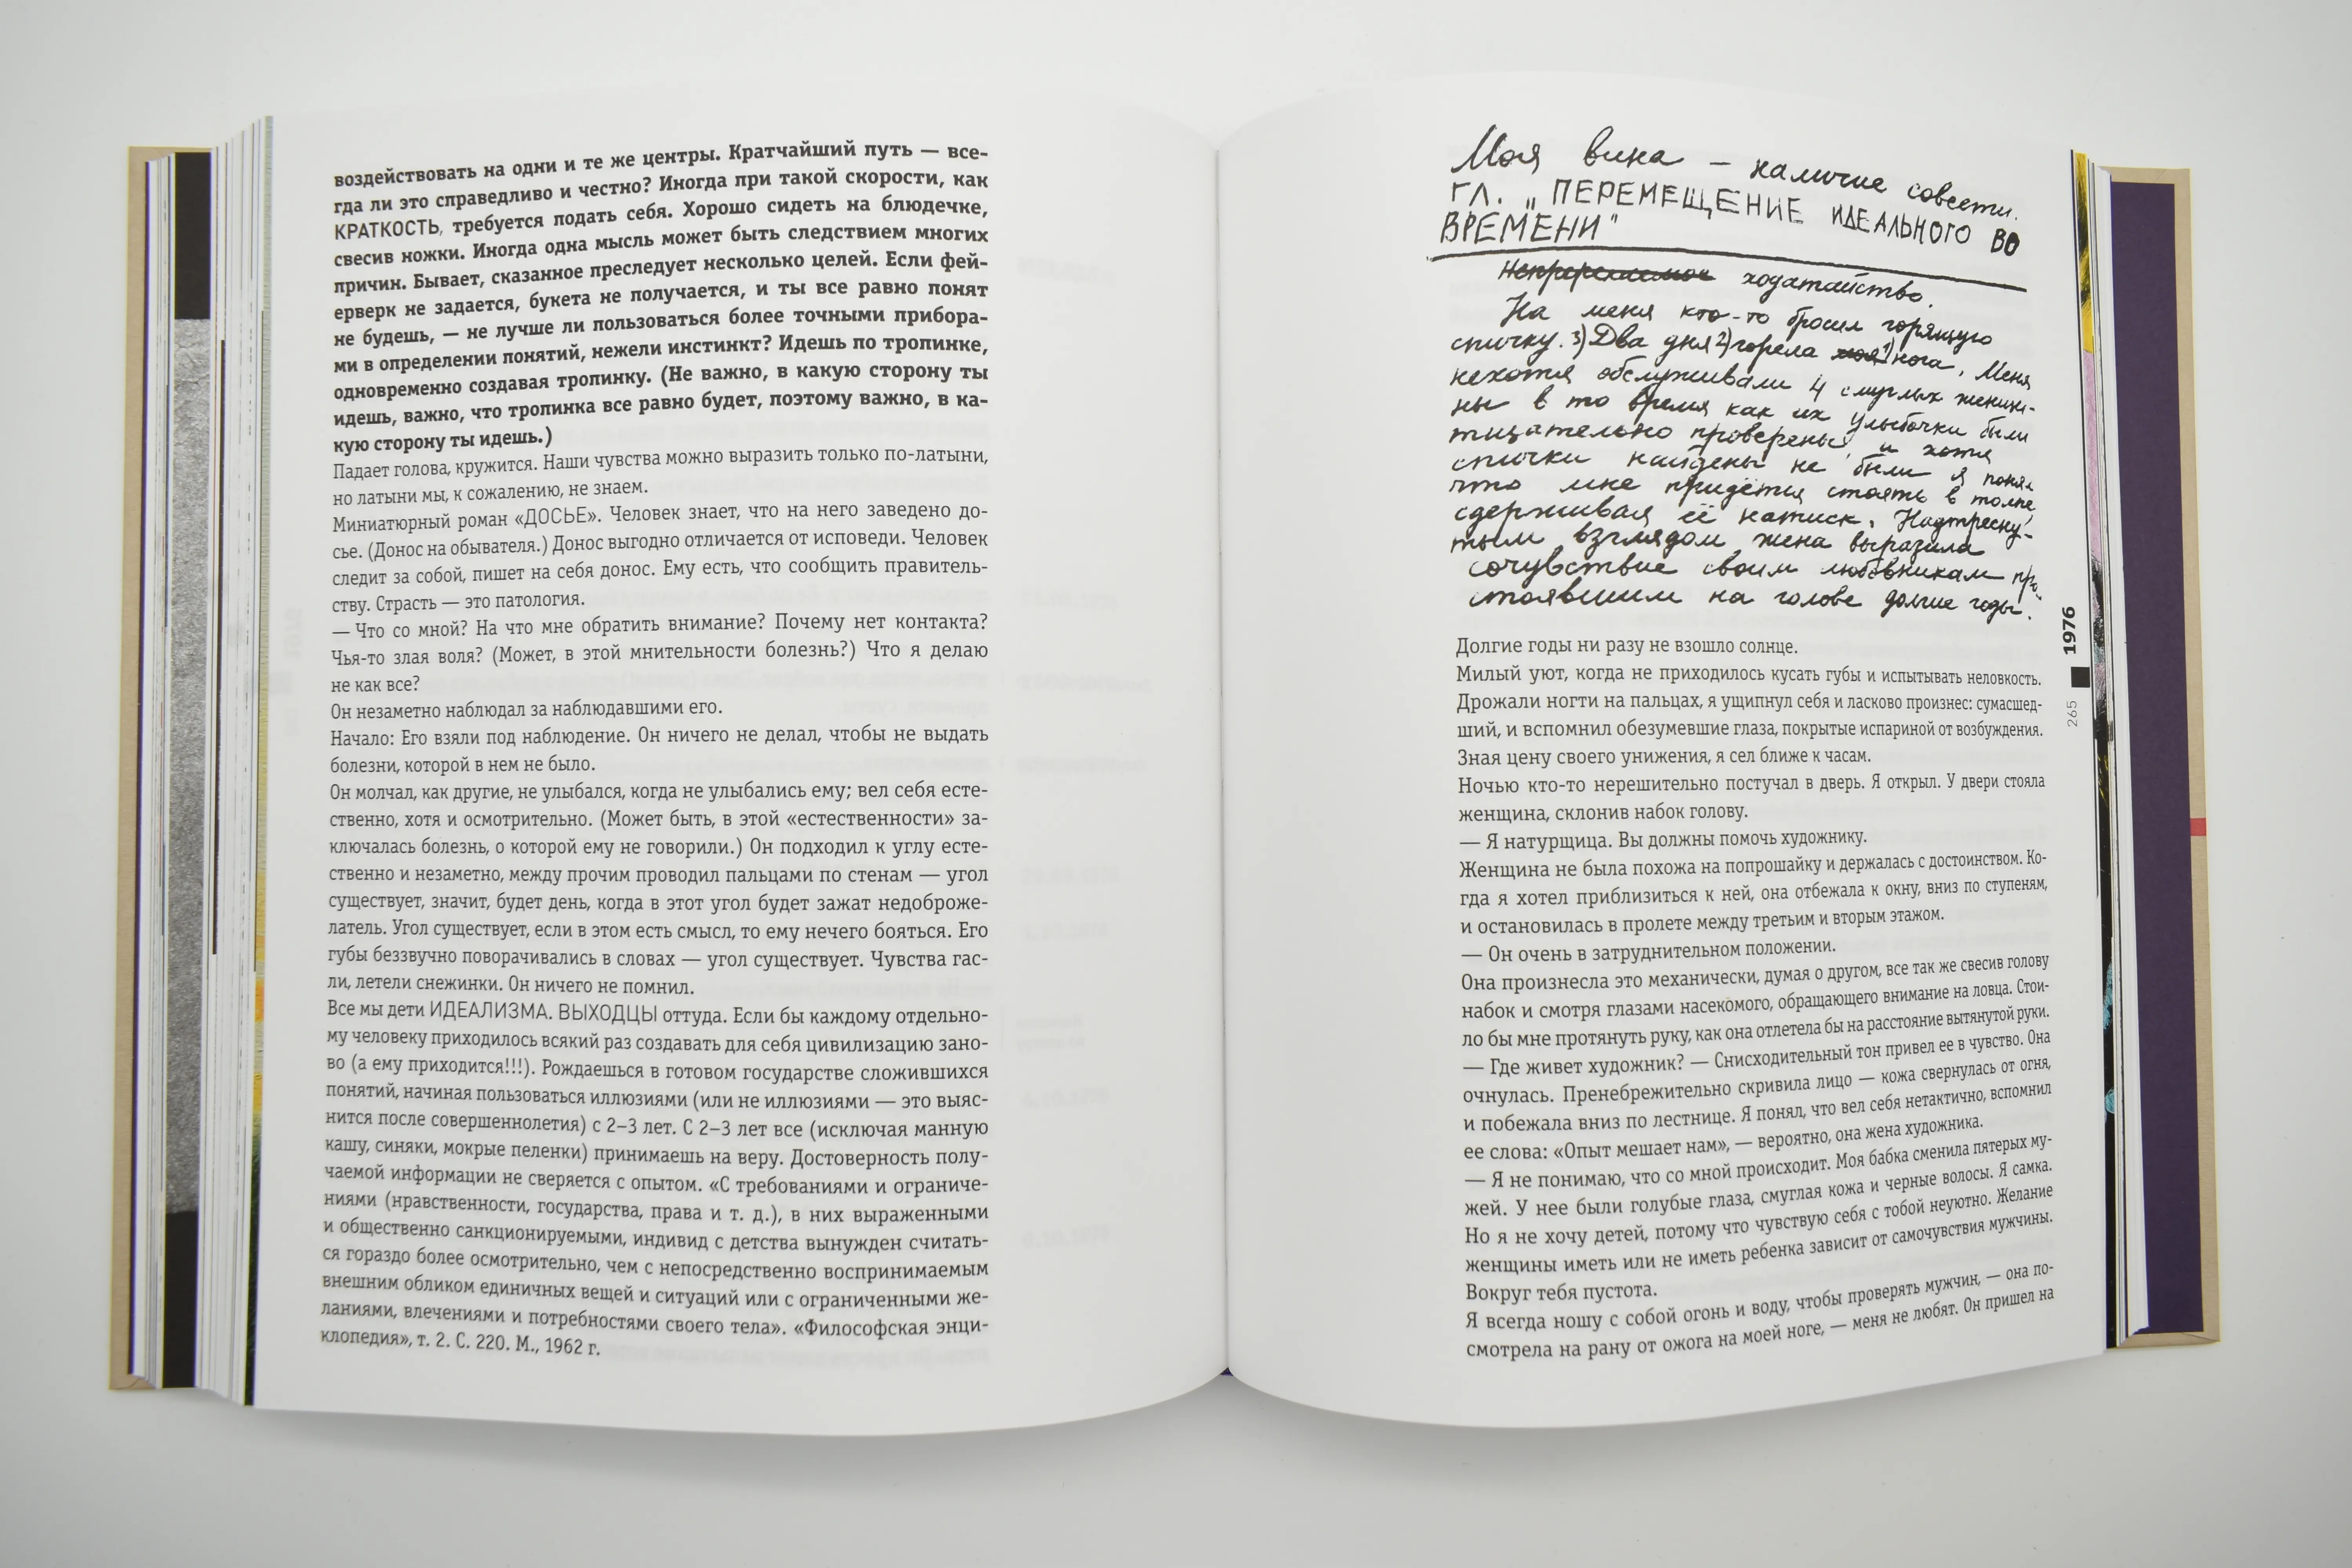 воздействовать на одни и те же центры. Кратчайший путь — все-
гда ли это справедливо и честно? Иногда при такой скорости, как
КРАТКОСТЬ, требуется подать себя. Хорошо сидеть на блюдечке,
свесив ножки. Иногда одна мысль может быть следствием многих
причин. Бывает, сказанное преследует несколько целей. Если фей-
ерверк не задается, букета не получается, и ты все равно понят
не будешь, — не лучше ли пользоваться более точными прибора-
ми в определении понятий, нежели инстинкт? Идешь по тропинке,
одновременно создавая тропинку. (Не важно, в какую сторону ты
идешь, важно, что тропинка все равно будет, поэтому важно, в ка-
кую сторону ты идешь.)
Падает голова, кружится. Наши чувства можно выразить только по-латыни,
но латыни мы, к сожалению, не знаем.
Миниатюрный роман «ДОСЬЕ». Человек знает, что на него заведено до-
сье. (Донос на обывателя.) Донос выгодно отличается от исповеди. Человек
следит за собой, пишет на себя донос. Ему есть, что сообщить правитель-
ству. Страсть — это патология.
— Что со мной? На что мне обратить внимание? Почему нет контакта?
Чья-то злая воля? (Может, в этой мнительности болезнь?) Что я делаю
не как все?
Он незаметно наблюдал за наблюдавшими его.
Начало: Его взяли под наблюдение. Он ничего не делал, чтобы не выдать
болезни, которой в нем не было.
Он молчал, как другие, не улыбался, когда не улыбались ему; вел себя есте-
ственно, хотя и осмотрительно. (Может быть, в этой «естественности» за-
ключалась болезнь, о которой ему не говорили.) Он подходил к углу есте-
ственно и незаметно, между прочим проводил пальцами по стенам — угол
существует, значит, будет день, когда в этот угол будет зажат недоброже-
латель. Угол существует, если в этом есть смысл, то ему нечего бояться. Его
губы беззвучно поворачивались в словах — угол существует. Чувства гас-
ли, летели снежинки. Он ничего не помнил.
Все мы дети ИДЕАЛИЗМА. ВЫХОДЦЫ оттуда. Если бы каждому отдельно-
му человеку приходилось всякий раз создавать для себя цивилизацию зано-
во (а ему приходится!!!). Рождаешься в готовом государстве сложившихся
понятий, начиная пользоваться иллюзиями (или не иллюзиями — это выяс-
нится после совершеннолетия) с 2–3 лет. С 2–3 лет все (исключая манную
кашу, синяки, мокрые пеленки) принимаешь на веру. Достоверность полу-
чаемой информации не сверяется с опытом. «С требованиями и ограниче-
ниями (нравственности, государства, права и т. д.), в них выраженными
и общественно санкционируемыми, индивид с детства вынужден считать-
ся гораздо более осмотрительно, чем с непосредственно воспринимаемым
внешним обликом единичных вещей и ситуаций или с ограниченными же-
ланиями, влечениями и потребностями своего тела». «Философская энци-
клопедия», т. 2. С. 220. М., 1962 г.
Моя вина — наличие совести.
ГЛ. „ПЕРЕМЕЩЕНИЕ ИДЕАЛЬНОГО ВО
ВРЕМЕНИ"
ходатайство.
На меня кто-то бросил горящую
спичку. 3) Два дня 2) горела моя 1) нога. Меня
нехотя обслуживали 4 смуглых женщи-
ны в то время как их улыбочки были
тщательно проверены, и хотя
спички найдены не были я понял
что мне придётся стоять в толпе,
сдерживая её натиск. Надтресну-
тым взглядом жена выразила
сочувствие своим любовникам про-
стоявшим на голове долгие годы.
Долгие годы ни разу не взошло солнце.
Милый уют, когда не приходилось кусать губы и испытывать неловкость.
Дрожали ногти на пальцах, я ущипнул себя и ласково произнес: сумасшед-
ший, и вспомнил обезумевшие глаза, покрытые испариной от возбуждения.
Зная цену своего унижения, я сел ближе к часам.
Ночью кто-то нерешительно постучал в дверь. Я открыл. У двери стояла
женщина, склонив набок голову.
— Я натурщица. Вы должны помочь художнику.
Женщина не была похожа на попрошайку и держалась с достоинством. Ко-
гда я хотел приблизиться к ней, она отбежала к окну, вниз по ступеням,
и остановилась в пролете между третьим и вторым этажом.
— Он очень в затруднительном положении.
Она произнесла это механически, думая о другом, все так же свесив голову
набок и смотря глазами насекомого, обращающего внимание на ловца. Стои-
ло бы мне протянуть руку, как она отлетела бы на расстояние вытянутой руки.
— Где живет художник? — Снисходительный тон привел ее в чувство. Она
очнулась. Пренебрежительно скривила лицо — кожа свернулась от огня,
и побежала вниз по лестнице. Я понял, что вел себя нетактично, вспомнил
ее слова: «Опыт мешает нам», — вероятно, она жена художника.
— Я не понимаю, что со мной происходит. Моя бабка сменила пятерых му-
жей. У нее были голубые глаза, смуглая кожа и черные волосы. Я самка.
Но я не хочу детей, потому что чувствую себя с тобой неуютно. Желание
женщины иметь или не иметь ребенка зависит от самочувствия мужчины.
Вокруг тебя пустота.
Я всегда ношу с собой огонь и воду, чтобы проверять мужчин, — она по-
смотрела на рану от ожога на моей ноге, — меня не любят. Он пришел на
1976
265